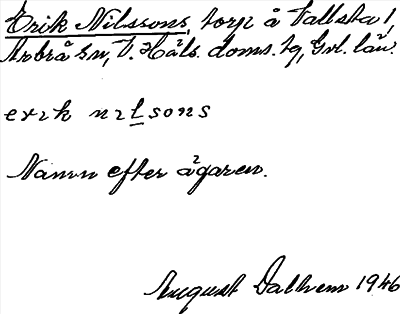 Erik Nilssons, torp å Vallsta 1,
Arbrå sn, V. Häls. doms. tg, Gvl. län.
erik nilsons
Namn efter ägaren.
August Dalhem 1946